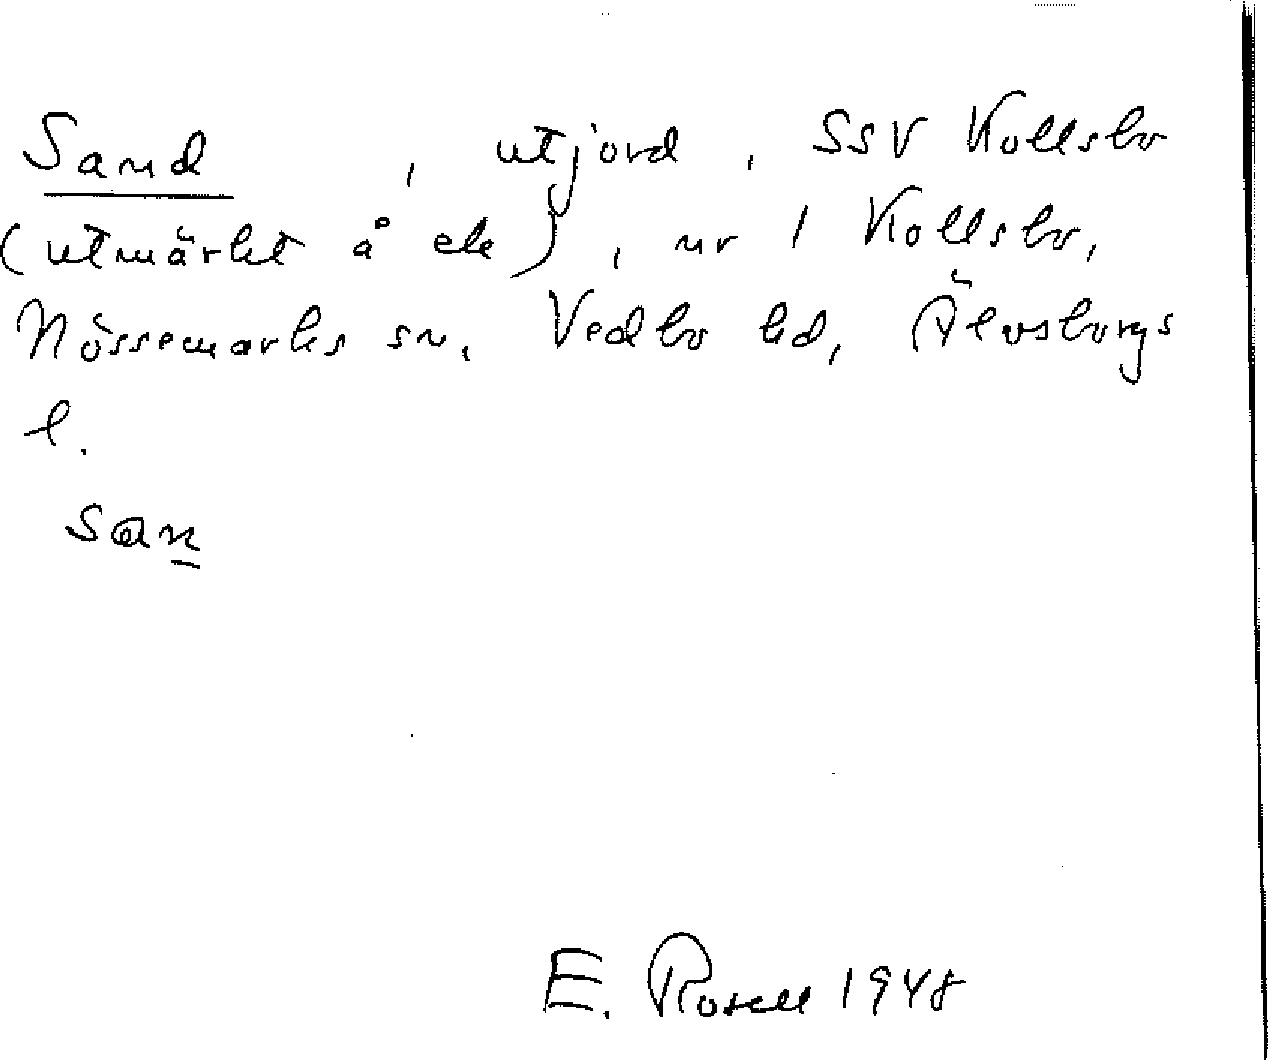 Sand , utjord , SSV Kollsbo
(utmärkt å ek) , nr 1 Kollsbo,
Nössemarks sn, Vedbo hd, Älvsborgs
l.
san
E. Rosell 1948